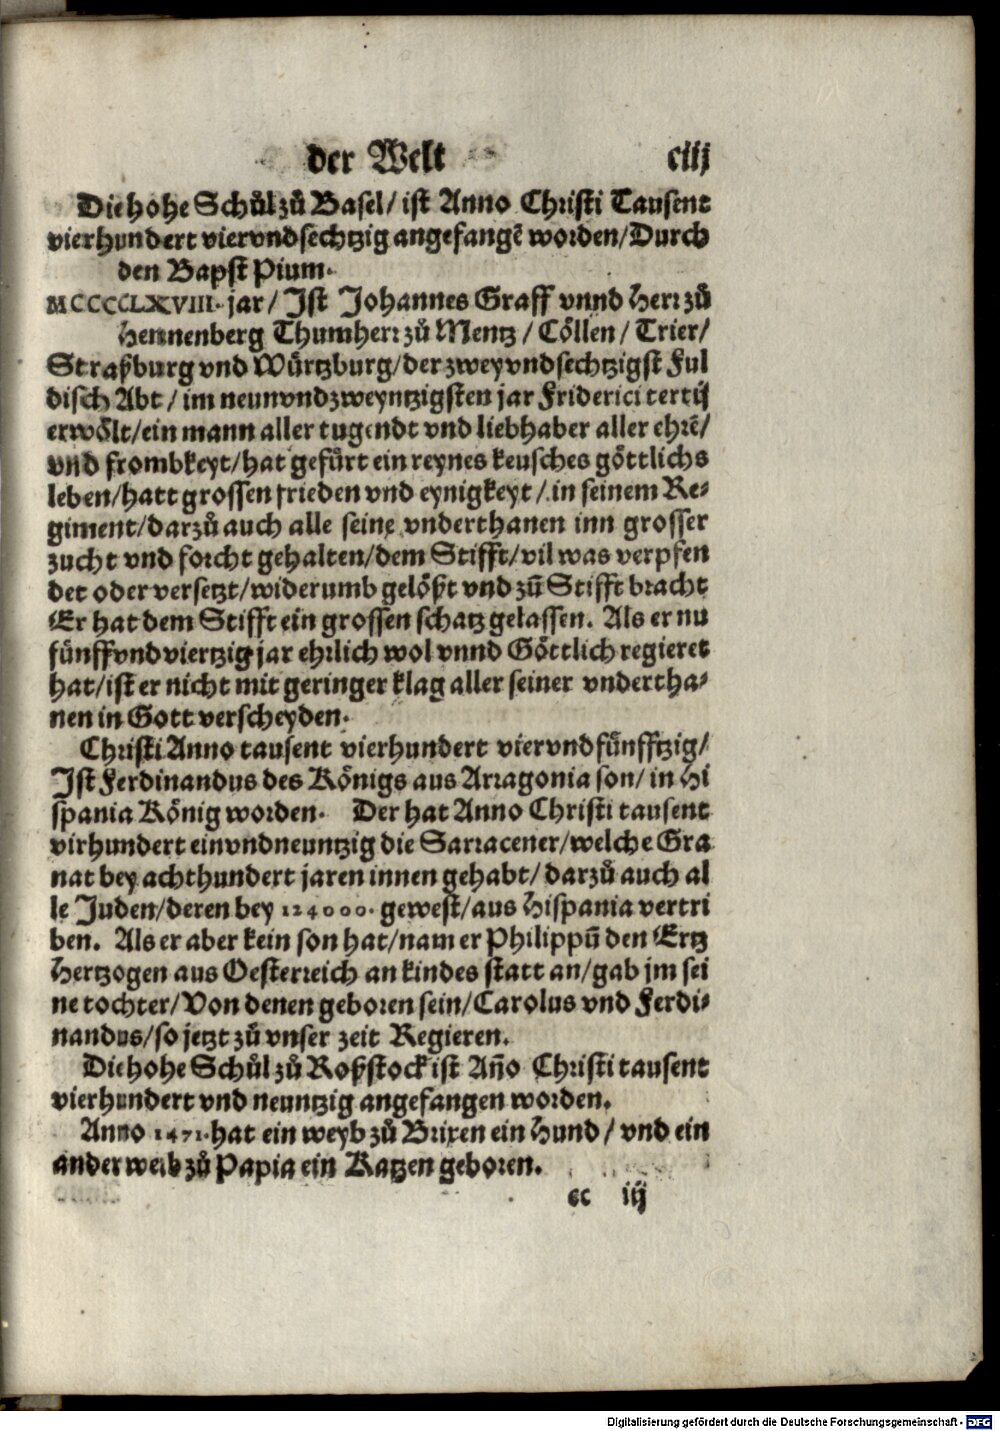 der Welt ciij
Die hohe Schůl zů Basel/ ist Anno Christi Tausent
vierhundert viervndsechtzig angefangẽ worden/ Durch
den Bapst Pium.
MCCCCLXVIII. jar/ Ist Johannes Graff vnnd Herr zů
Hennenberg Thumherr zů Mentz/ Cöllen/ Trier/
Straßburg vnd Würtzburg/ der zweyvndsechtzigst Ful
disch Abt/ im neunvndzweyntzigsten jar Friderici tertij
erwölt/ ein mann aller tugendt vnd liebhaber aller ehrẽ/
vnd frombkeyt/ hat gefürt ein reynes keusches göttlichs
leben/ hatt grossen frieden vnd eynigkeyt/ in seinem Re-
giment/ darzů auch alle seine vnderthanen inn grosser
zucht vnd forcht gehalten/ dem Stifft/ vil was verpfen
det oder versetzt/ widerumb gelößt vnd zũ Stifft bracht
Er hat dem Stifft ein grossen schatz gelassen. Als er nu
fünffvndviertzig jar ehrlich wol vnnd Göttlich regieret
hat/ ist er nicht mit geringer klag aller seiner vndertha-
nen in Gott verscheyden.
Christi Anno tausent vierhundert viervndfünfftzig/
Ist Ferdinandus des Königs aus Arragonia son/ in Hi
spania König worden. Der hat Anno Christi tausent
virhundert einvndneuntzig die Sarracener/ welche Gra
nat bey achthundert jaren innen gehabt/ darzů auch al
le Juden/ deren bey 124000. gewest/ aus Hispania vertri
ben. Als er aber kein son hat/ nam er Philippũ den Ertz
Hertzogen aus Oesterreich an kindes statt an/ gab jm sei
ne tochter/ Von denen geboren sein/ Carolus vnd Ferdi-
nandus/ so jetzt zů vnser zeit Regieren.
Die hohe Schůl zů Roßstock ist Año Christi tausent
vierhundert vnd neuntzig angefangen worden.
Anno 1471. hat ein weyb zů Brixen ein Hund/ vnd ein
ander weib zů Papia ein Katzen geboren.
cc iij
Digitalisierung gefördert durch die Deutsche Forschungsgemeinschaft - DFG